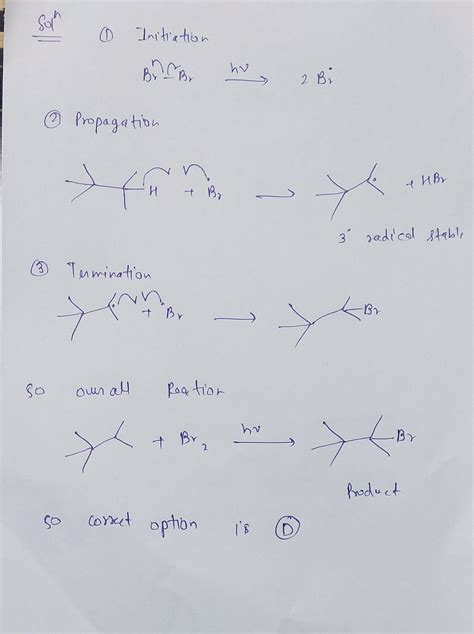 Solⁿ
① Initiation
Br—Br hν 2 Br•
② Propagation
H + Br• + HBr
3° radical stable
③ Termination
+ Br• Br
so overall Reaction
+ Br₂ hν Br
Product
so correct option is Ⓓ